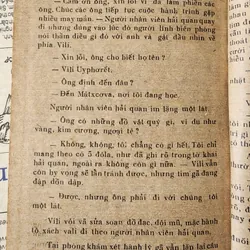 — Cảm ơn ông, xin lỗi vì đã làm phiền các
ông. Chúc các ông tiếp tục cuộc hành trình gặp
nhiều may mắn. — Người nhân viên hải quan quay
đi nhưng đúng vào lúc đó người lính biên phòng
nói thầm điều gì đó với anh và gật đầu nhìn về
phía Vili.
— Xin lỗi, ông cho biết họ tên ?
— Vili Uyphorét.
— Ông định đến đâu ?
— Đến Mátxcơva, nơi tôi đang học.
Người nhân viên hải quan im lặng một lát.
— Ông có những đồ vật quý gì, ví dụ như
vàng, kim cương, ngoại tệ ?
— Không, không, tôi chẳng có gì hết. Tôi chỉ
mang theo có 5 đôla, như đã ghi rõ trong tờ khai
hải quan, ngoài ra không còn gì nữa — Vili vẫn
còn hy vọng sẽ lẩn tránh được, nhưng tim gã đang
đập dồn dập.
— Được, nhưng ông phải đi với chúng tôi
một lát.
Vili vội vã sửa soạn đồ đạc, đội mũ, mặc hành
tô, xách vali đi theo người nhân viên hải quan.
Tại phòng khám xét hành lý gã vẫn lặp lại câu